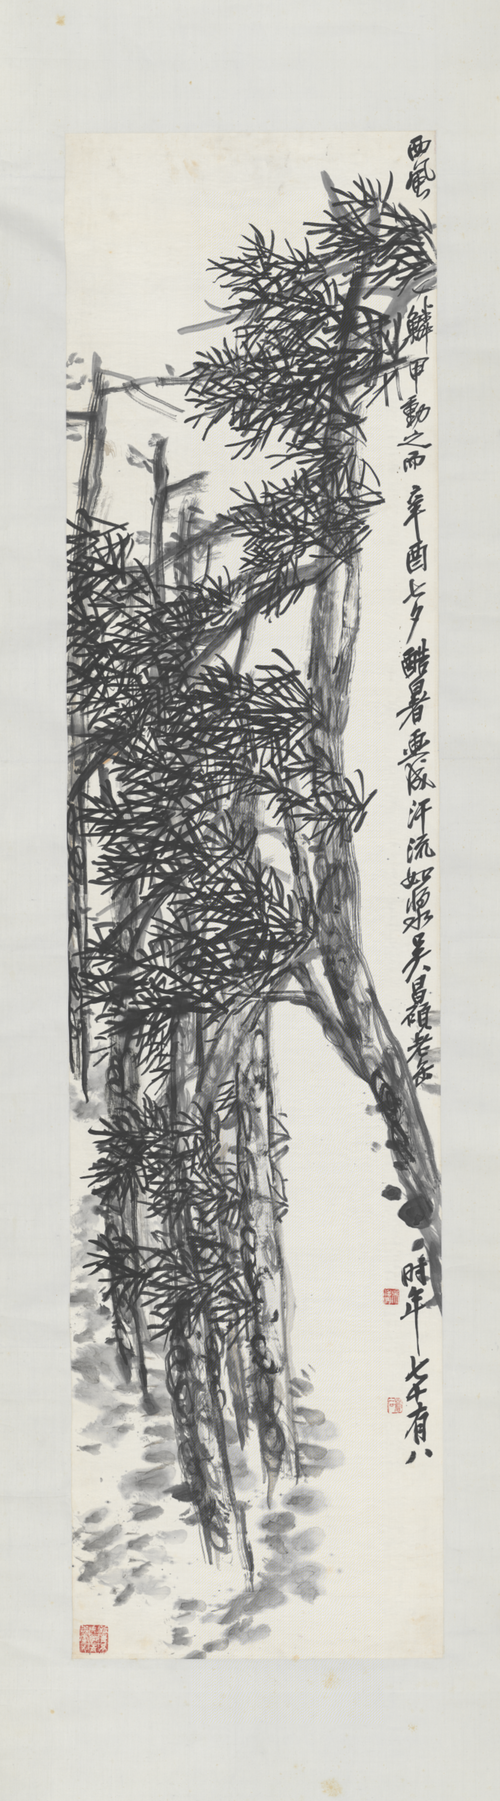 西風鱗甲動之而辛酉七夕酷暑畫成汗流如漿水吳昌碩老缶時年七十有八